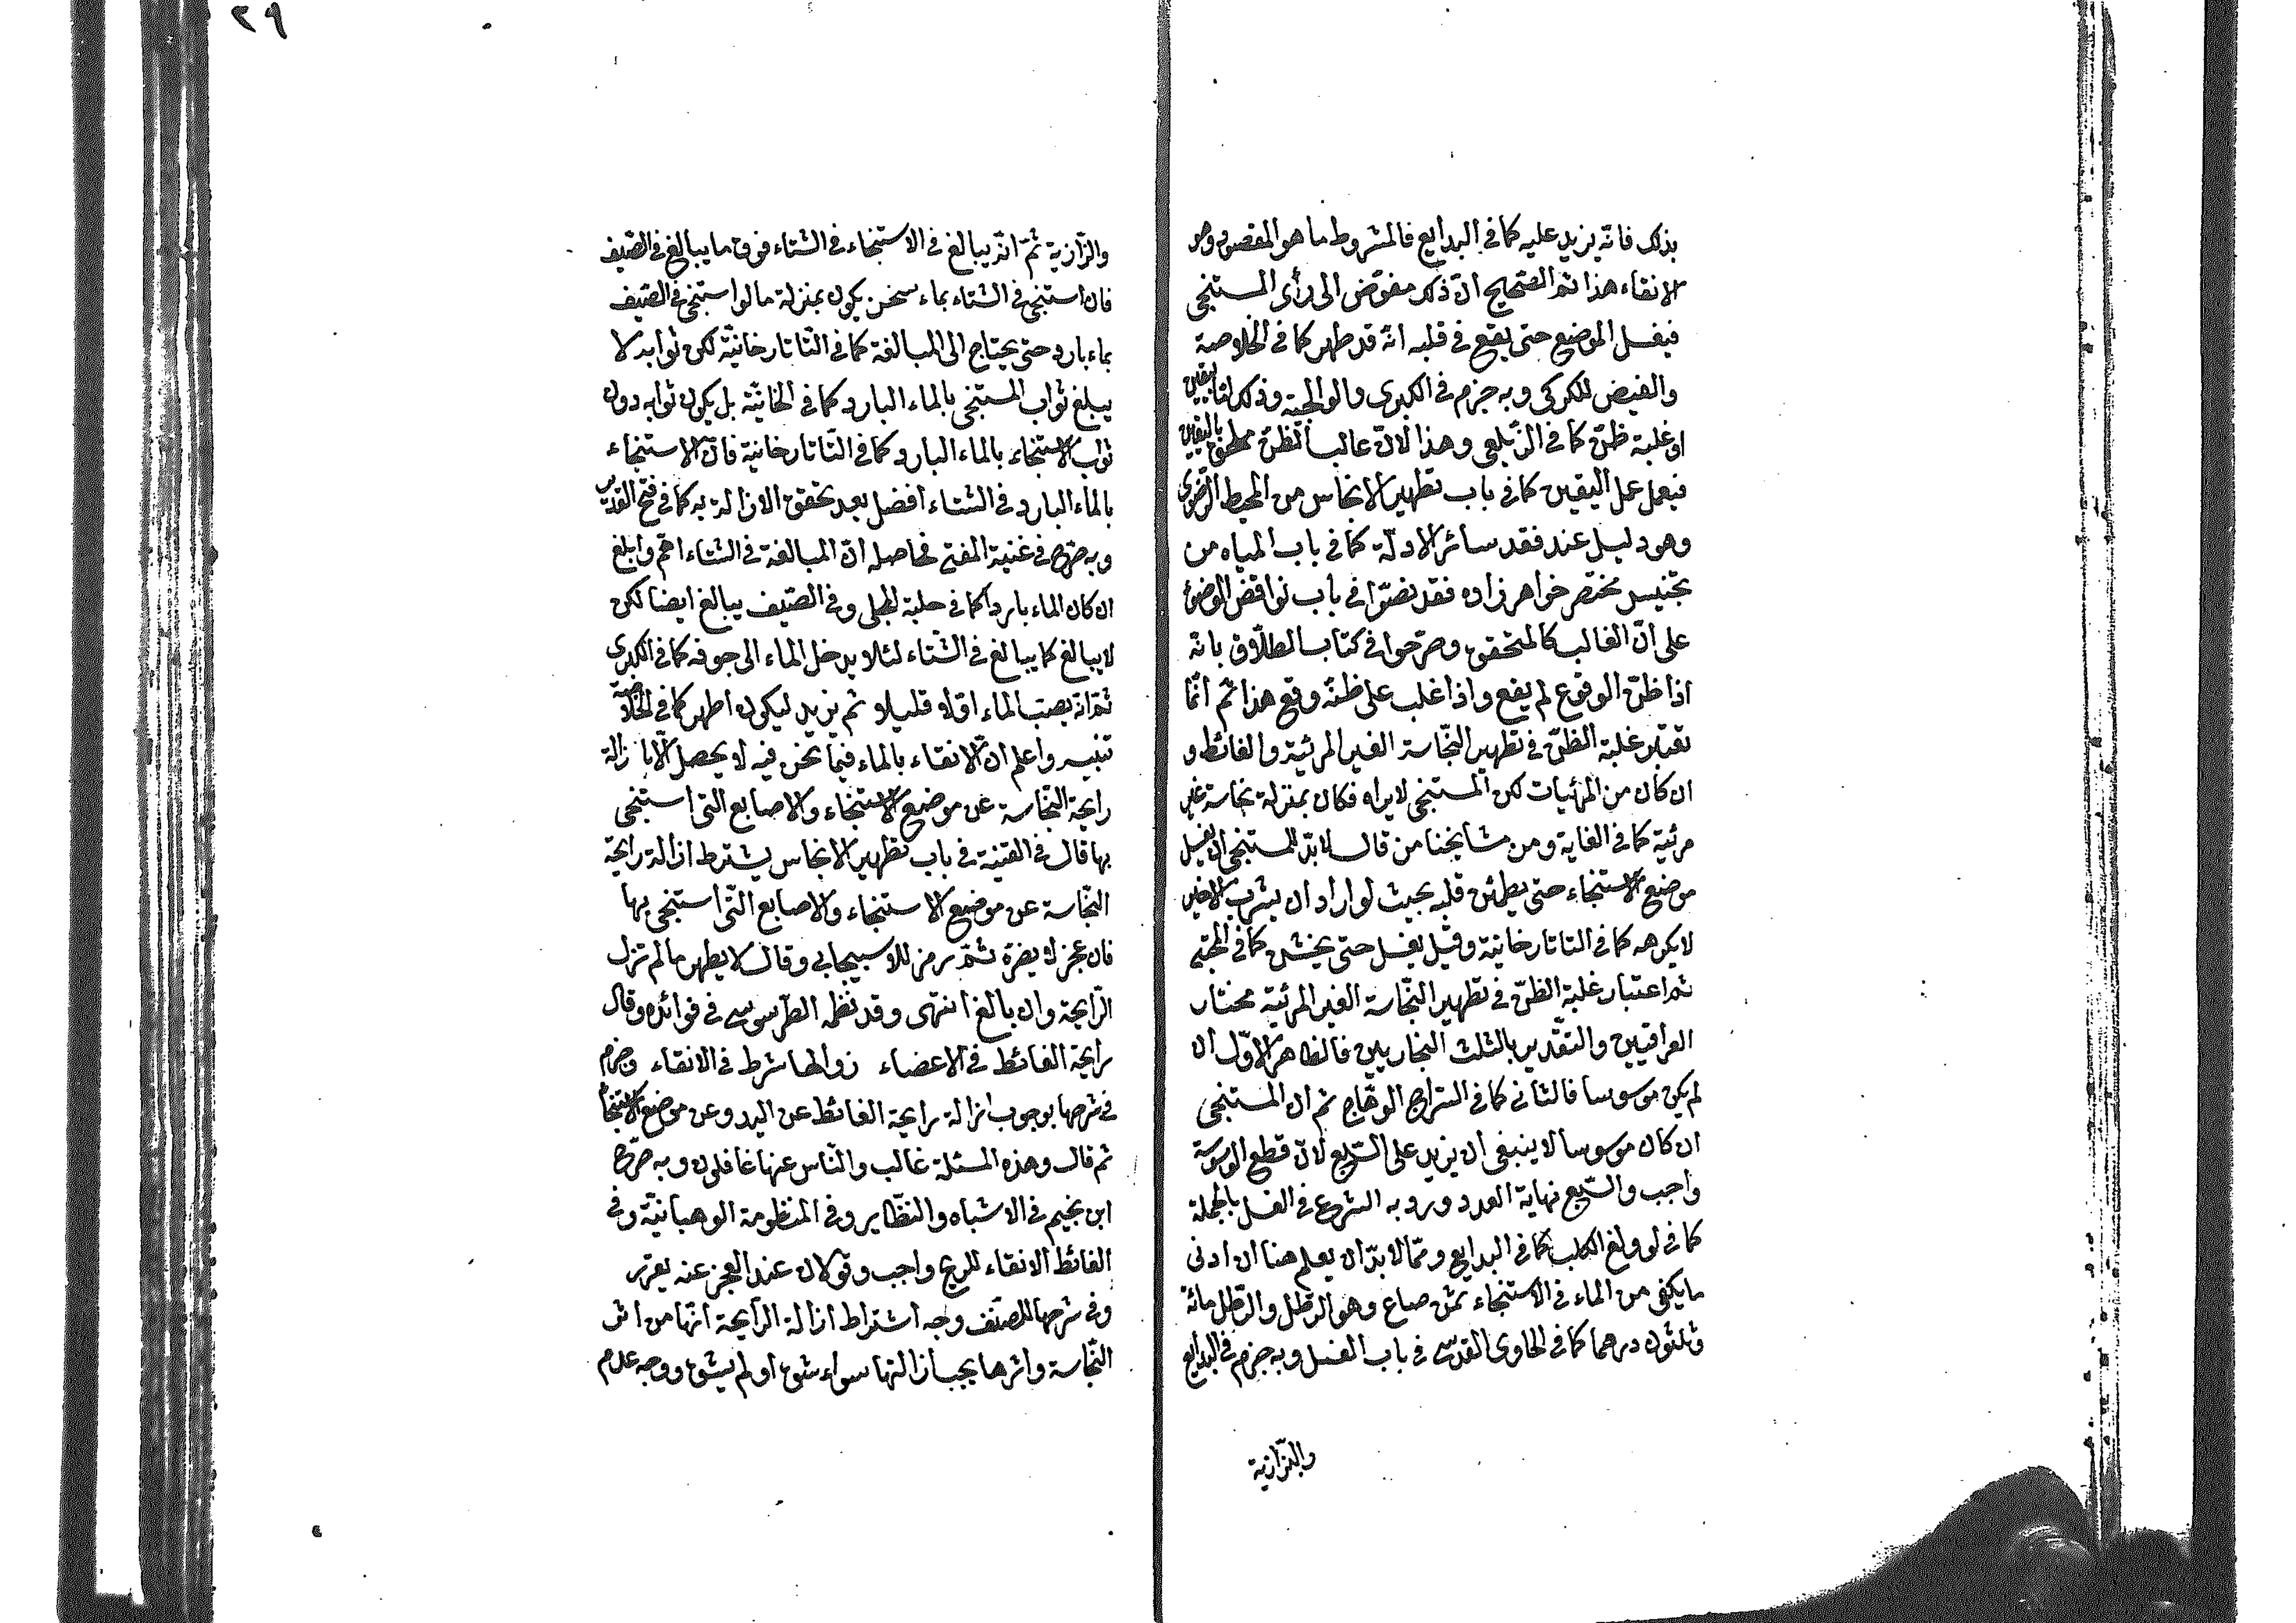 بذلك فانّه يزيد عليه كما فى البدايع فالمشروط ما هو المقصود وهو
الانقاء هذا ثم الصّحيح انّ ذلك مفوّض الى رأى المستنجى
فيغسل الموضع حتى يقع فى قلبه انّه قد طهر كما فى الخلاصة
والفيض للكركى وبه جزم فى الكبرى والولوالجية وذلك امّا بيقين
او غلبة ظنّ كما فى الزّيلعى وهذا لانّ غالب الظنّ ملحق باليقين
فيعمل عمل اليقين كما فى باب تطهير الانجاس من المحيط الرّضوى
وهو دليل عند فقد سائر الادلّة كما فى باب المياه من
تجنيس مختصر خواهر زاده فقد نصّوا فى باب نواقض الوضوء
على انّ الغالب كالمتحقق وصرّحوا فى كتاب الطلاق بانّه
اذا ظنّ الوقوع لم يقع واذا غلب على ظنّه وقع هذا ثم انّما
تعتبر غلبة الظنّ فى تطهير النّجاسة الغير المرئية والغائط و
ان كان من المرئيات لكن المستنجى لا يراه فكان بمنزلة نجاسة غير
مرئية كما فى الغاية ومن مشايخنا من قال لا بدّ للمستنجى ان يغسل
موضع الاستنجاء حتى يطمئن قلبه بحيث لو اراد ان يشرب الاخير
لا يكرهه كما فى التاتارخانية وقيل يغسل حتى يخشن كما فى المجتبى
ثم اعتبار غلبة الظنّ فى تطهير النّجاسة الغير المرئيّة مختار
العراقيين والتقدير بالثلث البخاريين فالظاهر الاوّل ان
لم يكن موسوسا فالثانى كما فى السّراج الوهّاج ثم ان المستنجى
ان كان موسوسا لا ينبغى ان يزيد على السّبع لانّ قطع الوسوسة
واجب والسّبع نهاية العدد ورد به الشرع فى الغسل بالجملة
كما فى لو ولغ الكلب كما فى البدايع وممّا لا بدّ ان يعلم هنا ان ادنى
ما يكفى من الماء فى الاستنجاء ثمن صاع وهو الرّطل والرّطل مائة
وثلثون درهما كما فى الحاوى القدسّى فى باب الغسل وبه جزم فى البدايع
والبزّازية
٢٩
والزّازية ثم انّه يبالغ فى الاستنجاء فى الشتاء فوق ما يبالغ فى الصّيف
فان استنجى فى الشتاء بماء سخن يكون بمنزلة ما لو استنجى فى الصّيف
بماء بارد حتى يحتاج الى المبالغة كما فى التّاتارخانيّة لكن ثوابه لا
يبلغ ثواب المستنجى بالماء البارد كما فى الخانيّة بل يكون ثوابه دون
ثواب الاستنجاء بالماء البارد كما فى التّاتارخانية فانّ الاستنجاء
بالماء البارد فى الشتاء افضل بعد تحقق الازالة به كما فى فتح القدير
وبه صرّح فى غنية المفتى فحاصله انّ المبالغة فى الشتاء اهمّ وابلغ
ان كان الماء باردا كما فى حلية المجلى وفى الصّيف يبالغ ايضا لكن
لا يبالغ كما يبالغ فى الشّتاء لئلا يدخل الماء الى جوفه كما فى الكبرى
ثم انّه يصبّ الماء اوّلا قليلا ثم يزيد ليكون اطهر كما فى الخلاصة
تنبيه واعلم انّ الانقاء بالماء فيما نحن فيه لا يحصل الّا بازالة
رايحة النّجاسة عن موضع الاستنجاء والاصابع التى استنجى
بها قال فى القنية فى باب تطهير الانجاس يشترط ازالة رايحة
النّجاسة عن موضع الاستنجاء والاصابع التّى استنجى بها
فان عجز لا يضرّه ثمّ رمز للاسبيجابى وقال لا يطهر ما لم تزل
الرّايحة وان بالغ انتهى وقد نظمه الطّرسوسى فى فوائده وقال
رايحة الغائط فى الاعضاء زوالها شرط فى الانقاء وجزم
فى شرحها بوجوب ازالة رايحة الغائط عن اليد وعن موضع الاستنجاء
ثم قال وهذه المسئلة غالب والنّاس عنها غافلون وبه صرّح
ابن نجيم فى الاشباه والنظّاير وفى المنظومة الوهبانيّة وفى
الغائط الانقاء للريح واجب وقولان عند العجز عنه يقرر
وفى شرحها للمصنّف وجه اشتراط ازالة الرّايحة انّها من اثر
النّجاسة واثرها يجب ازالتها سواء شقّ او لم يشقّ ووجه عدم